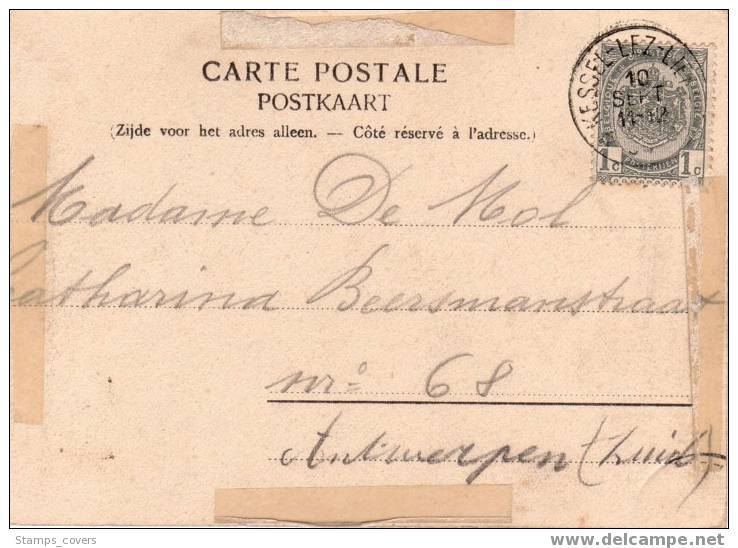 CARTE POSTALE
POSTKAART
(Zijde voor het adres alleen. — Côté réservé à l'adresse.)
KESSEL-LEZ-L
10
SEPT
11-12
1c 1c
Madame De Mol
Catharina Beersmanstraat
nro 68
Antwerpen (Zuid)
Stamps_covers
www.delcampe.net